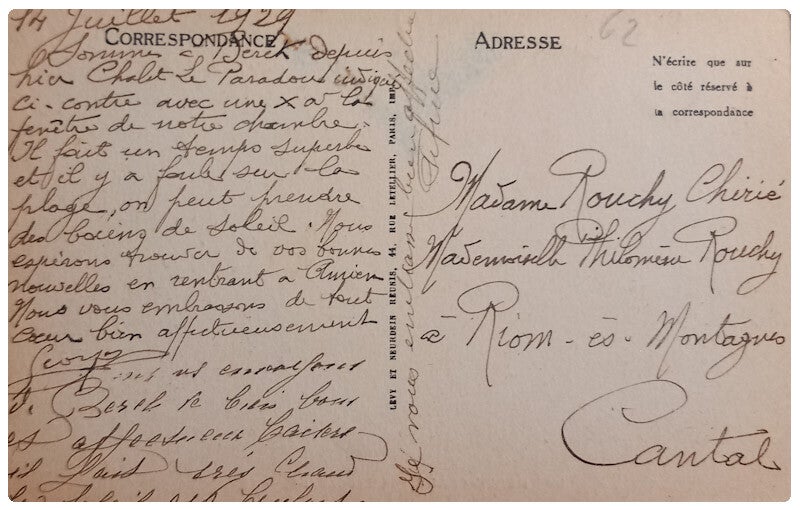 14 Juillet 1929
CORRESPONDANCE
Sommes à Berck depuis
hier Chalet Le Paradou indiqué
ci-contre avec une X à la
fenêtre de notre chambre.
Il fait un temps superbe
et il y a foule sur la
plage, on peut prendre
des bains de soleil. Nous
espérons trouver de vos bonnes
nouvelles en rentrant à Amiens
Nous vous embrassons de tout
cœur bien affectueusement
Georges
vous envoyons
Berck le bien bons
affectueux baisers
il fait très chaud
LÉVY ET NEURDEIN RÉUNIS, 44, RUE LETELLIER, PARIS, IMP.
Je vous embrasse bien affectueu
ADRESSE
62
N'écrire que sur
le côté réservé à
la correspondance
Madame Rouchy Chirié
Mademoiselle Philomène Rouchy
à Riom-ès-Montagnes
Cantal